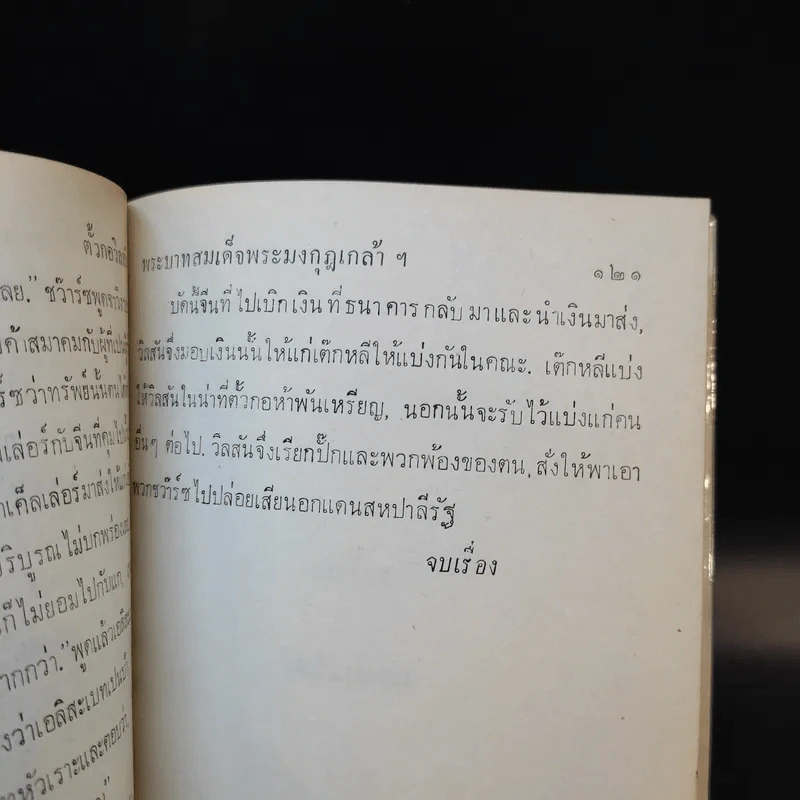 ตั้วกอวิลสัน
ลย.” ชว๊าร์ซพูดจา
ค้าสมาคมกับผู้ที่
ร์ซว่าทรัพย์นั้นตน
เล่อร์กับจีนที่คุมไป
เค็ลเล่อร์มาส่งให้
ริบูรณ ไม่บกพร่อง
ก็ไม่ยอมไปกับแก,
ากกว่า.” พูดแล้ว
งว่าเอลิสะเบทเปน
หัวเราะและตอบว่า
พระบาทสมเด็จพระมงกุฎเกล้า ฯ ๑๒๑
บัดนี้จีนที่ไปเบิกเงินที่ธนาคารกลับมาและนำเงินมาส่ง,
วิลสันจึ่งมอบเงินนั้นให้แก่เต๊กหลีให้แบ่งกันในคณะ. เต๊กหลีแบ่ง
ให้วิลสันในน่าที่ตั้วกอห้าพันเหรียญ, นอกนั้นจะรับไว้แบ่งแก่คน
อื่นๆ ต่อไป. วิลสันจึ่งเรียกปั๊กและพวกพ้องของตน, สั่งให้พาเอา
พวกชว๊าร์ซไปปล่อยเสียนอกแดนสหปาลีรัฐ
จบเรื่อง